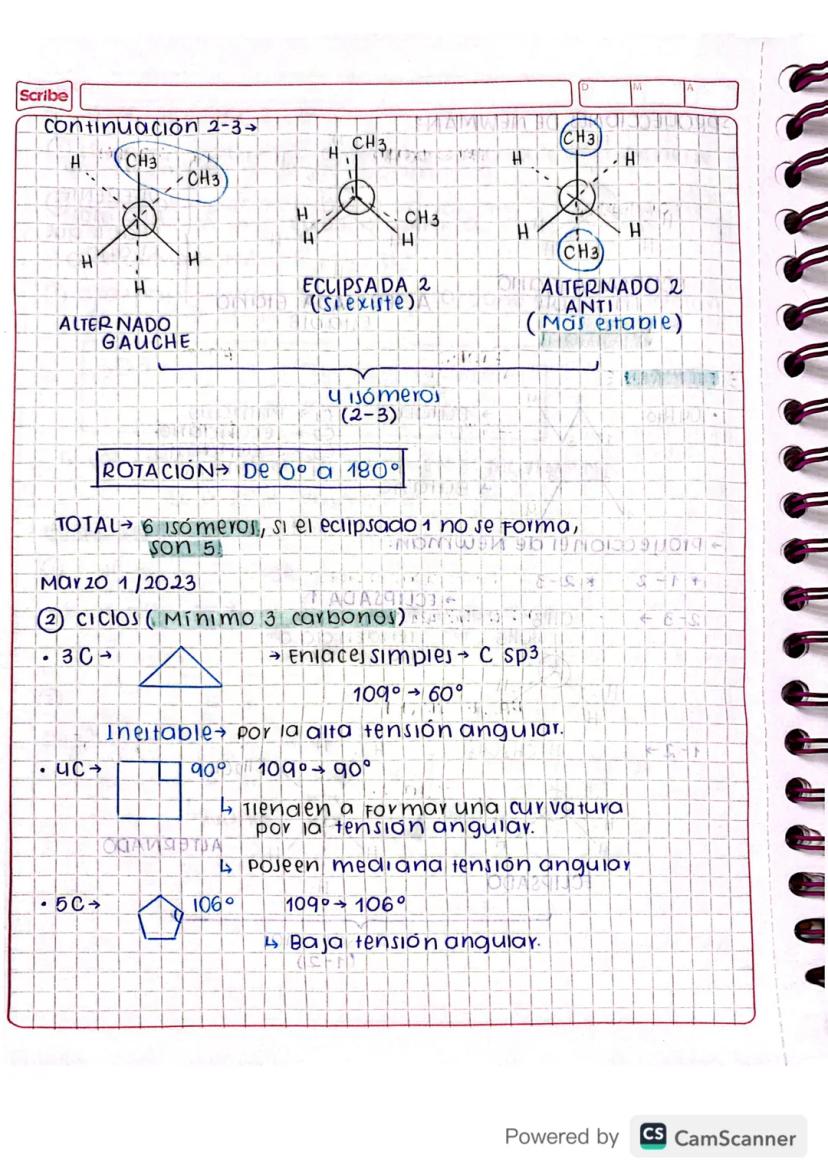 Scribe
D M A
continuación 2-3→
H CH3 CH3
H H
H
ALTERNADO
GAUCHE
H CH3
H CH3
H H
ECLIPSADA 2
(SI existe)
CH3
H H
H H
CH3
ALTERNADO 2
ANTI
(Más estable)
4 isómeros
(2-3)
ROTACIÓN→ De 0° a 180°
TOTAL→ 6 isómeros, si el eclipsado 1 no se forma,
son 5
Marzo 1/2023
② CICLOS (Mínimo 3 carbonos)
• 3C→ → Enlaces simples → C sp3
109° → 60°
Inestable→ por la alta tensión angular.
• 4C→ 90° 109°→ 90°
↳ Tienden a formar una curvatura
por la tensión angular.
↳ poseen mediana tensión angular
• 5C→ 106° 109°→ 106°
↳ Baja tensión angular.
Powered by CS CamScanner